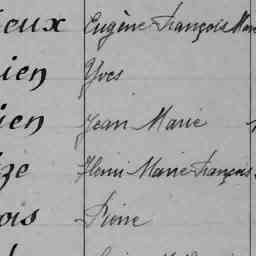 ieux Eugène François Marie
ien Yves
ien Jean Marie
ze Henri Marie François
ois Pierre